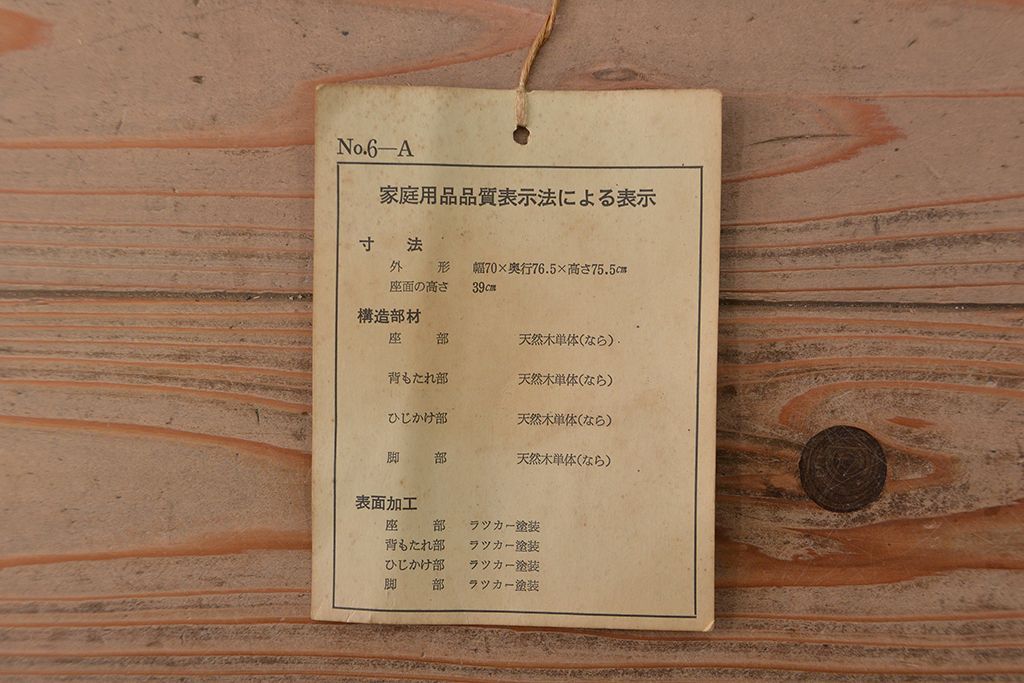 No.6—A
家庭用品品質表示法による表示
寸　法
外　形　幅70×奥行76.5×高さ75.5cm
座面の高さ　39cm
構造部材
座　部　天然木単体(なら)
背もたれ部　天然木単体(なら)
ひじかけ部　天然木単体(なら)
脚　部　天然木単体(なら)
表面加工
座　部　ラツカー塗装
背もたれ部　ラツカー塗装
ひじかけ部　ラツカー塗装
脚　部　ラツカー塗装